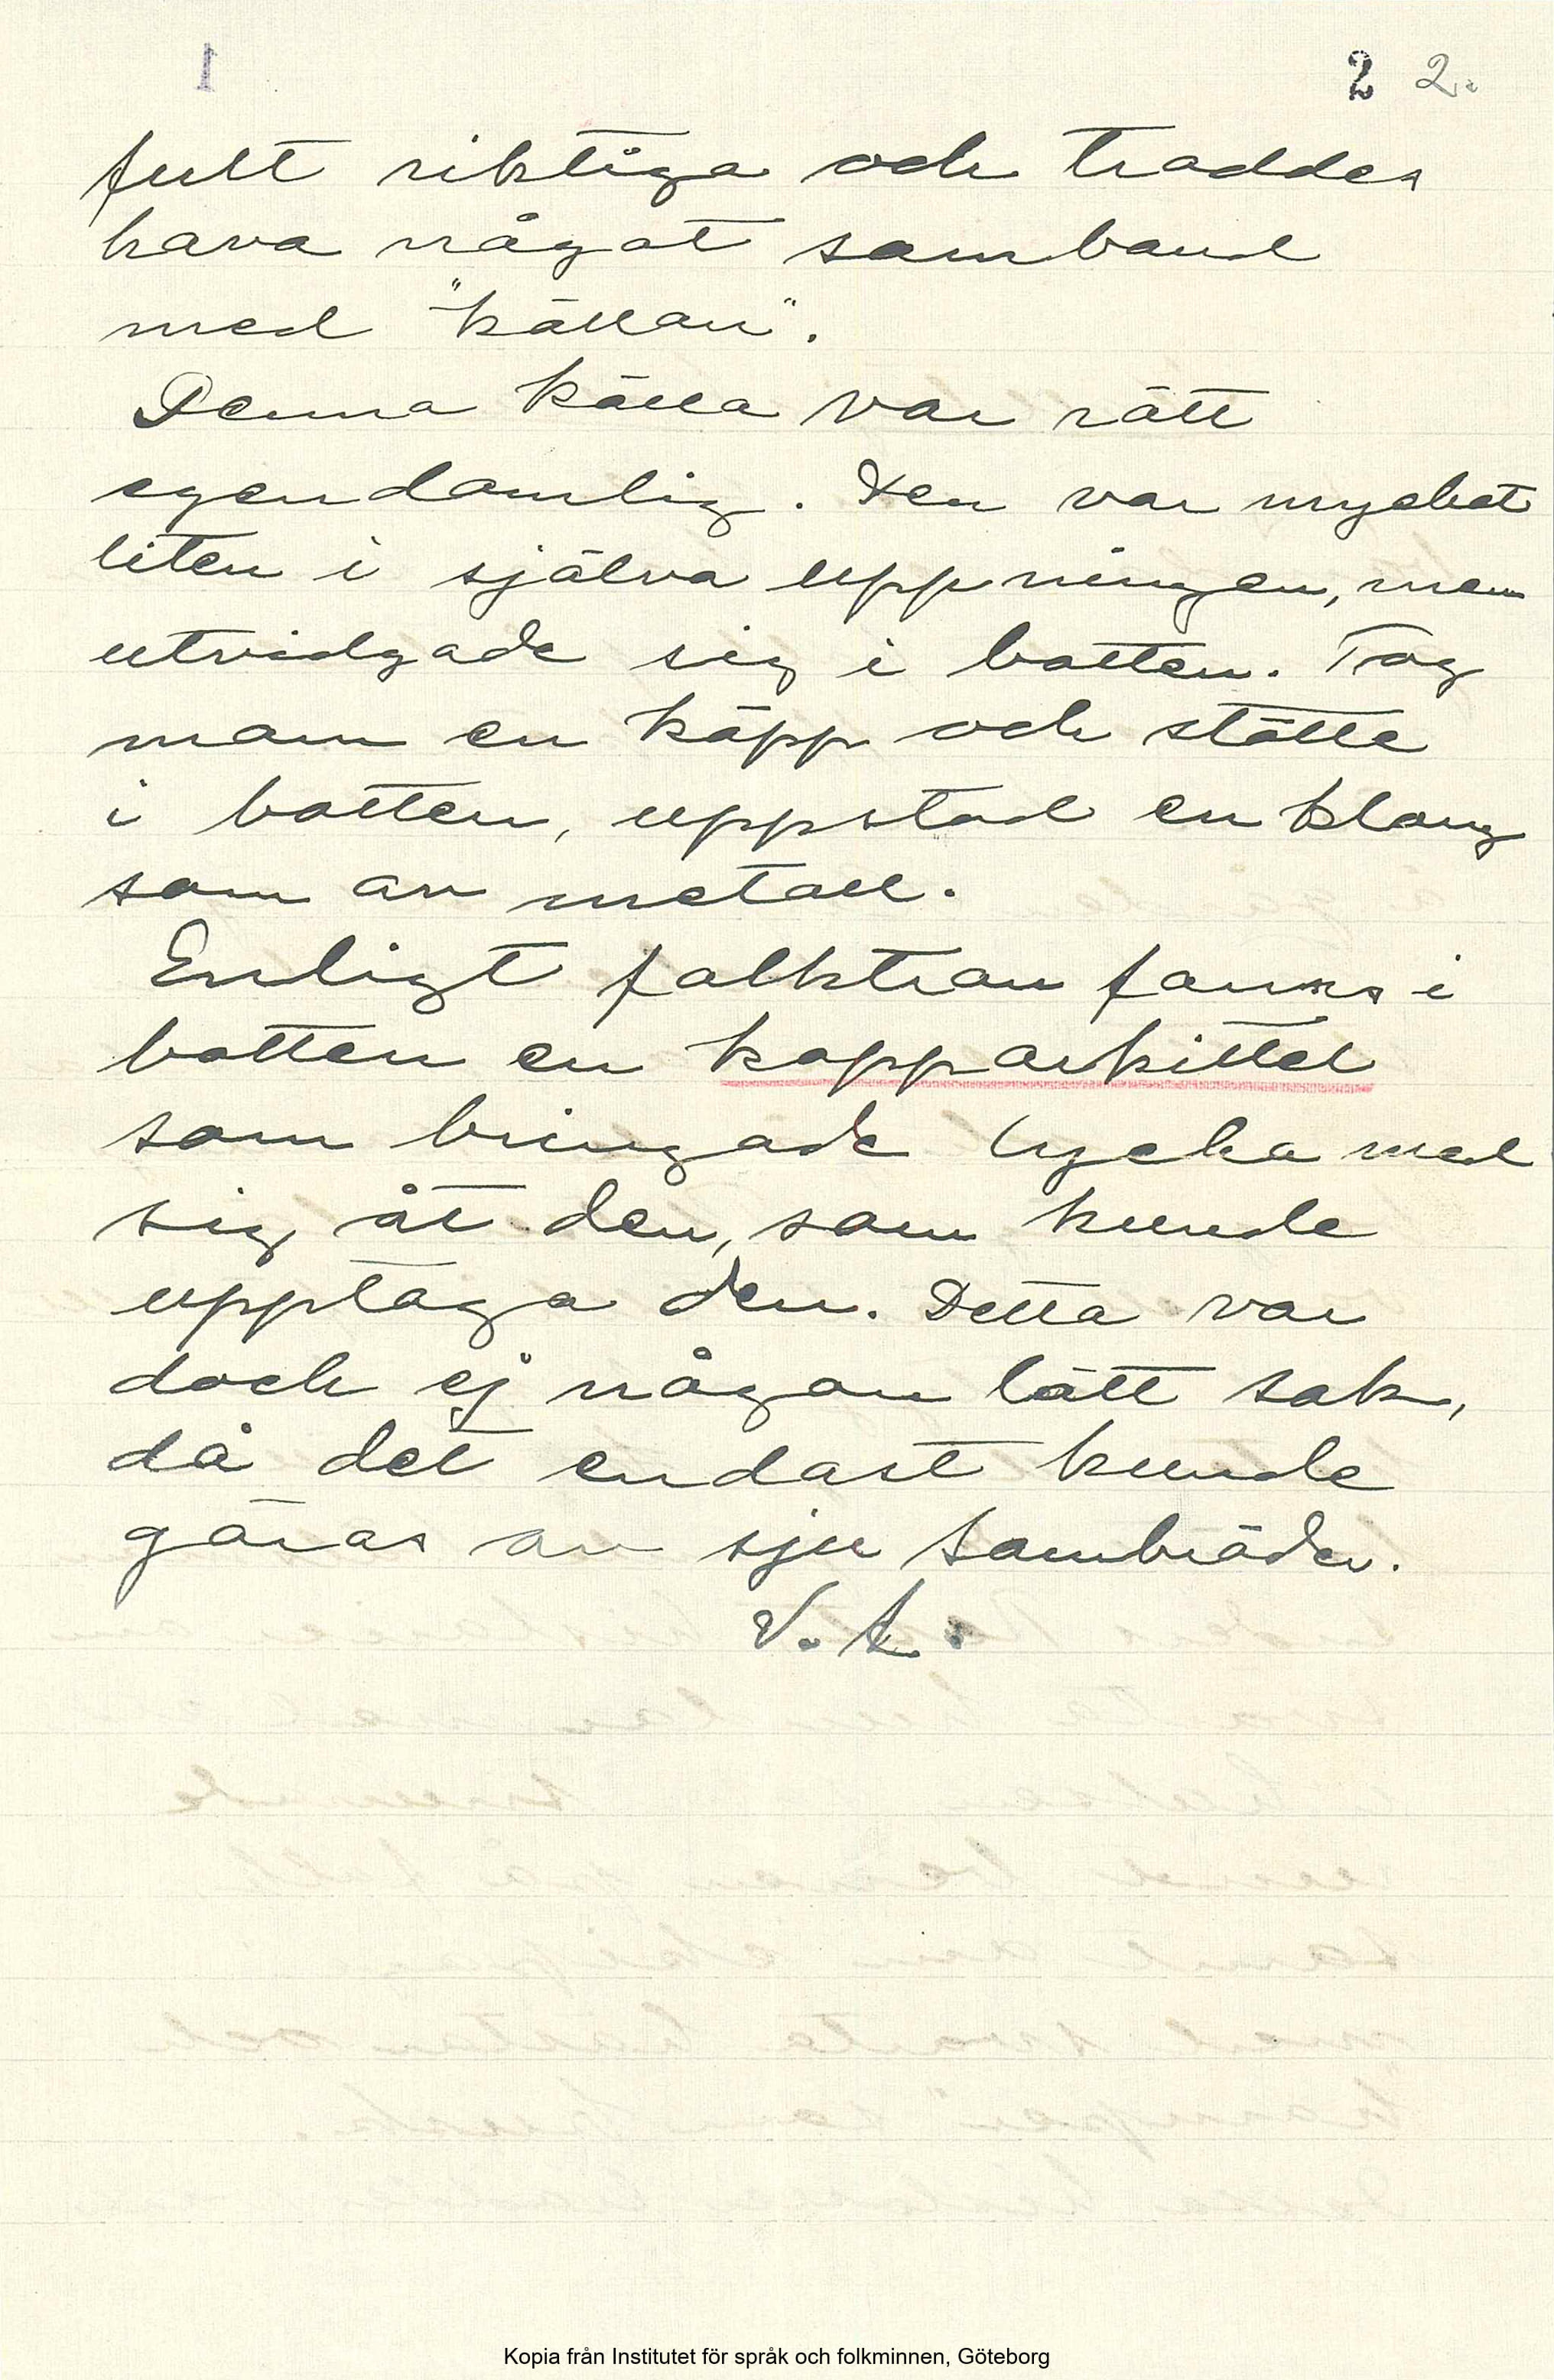 2 2.
fult riktiga och troddes
hava något samband
med "källan".
Denna källa var rätt
egendomlig. Den var mycket
liten i själva uppningen, men
utvidgade sig i botten. Tog
man en käpp och stötte
i botten, uppstod en klang
som av metall.
Enligt folktron fanns i
botten en kopparkittel
som bringade lycka med
sig åt den, som kunde
upptaga den. Detta var
dock ej någon lätt sak,
då det endast kunde
göras av sju sambröder.
V. A.
Kopia från Institutet för språk och folkminnen, Göteborg